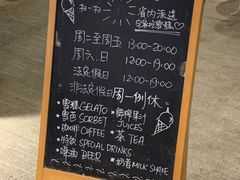 扫一扫
周二至周五 13:00-20:00
周六.日 12:00-19:00
法定假日 12:00-19:00
非法定假日 周一例休
雪糕 GELATO
雪芭 SORBET
咖啡 COFFEE
特饮 SPECIAL DRINKS
啤酒 BEER
鲜榨果汁 JUICES
茶 TEA
奶昔 MILK SHAKE